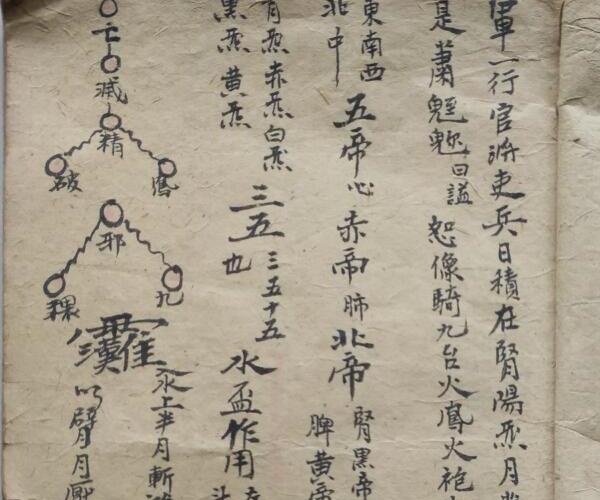 軍一行官將吏兵日積在腎陽炁月
是蕭曰謚恕像騎九台火鳳火袍
東南西
北中
五帝心赤帝肺北帝
腎黑帝
脾黄帝
青炁赤炁白炁
黑炁黄炁
三五
三五十五
也
水盃作用
亡
滅
精
破
邪
九
上半月斬
月